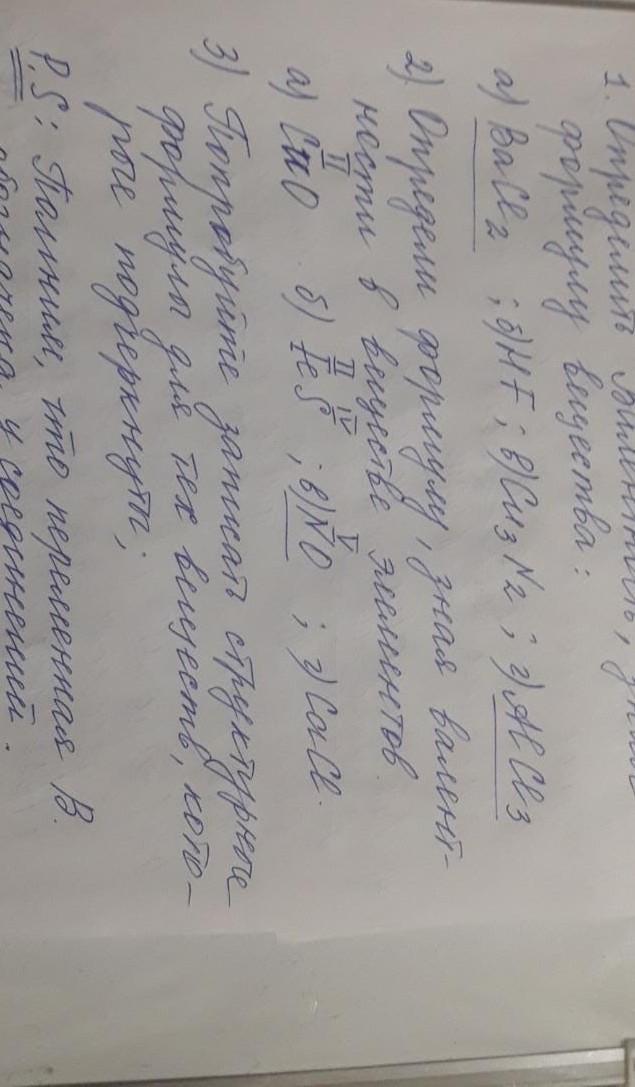 1. Определить валентность, зная
формулу вещества:
а) BaCl2 ; б) HF ; в) Cu3N2 ; г) AlCl3
2) Определи формулу, зная валент-
ности в веществе элементов
II II IV V
а) CuO б) FeS ; в) NO ; г) CaCl.
3) Попробуйте записать структурные
формулы для тех веществ, кото-
рые подчеркнуты;
P.S: Помним, что переменная В.
обозначена у соединений.